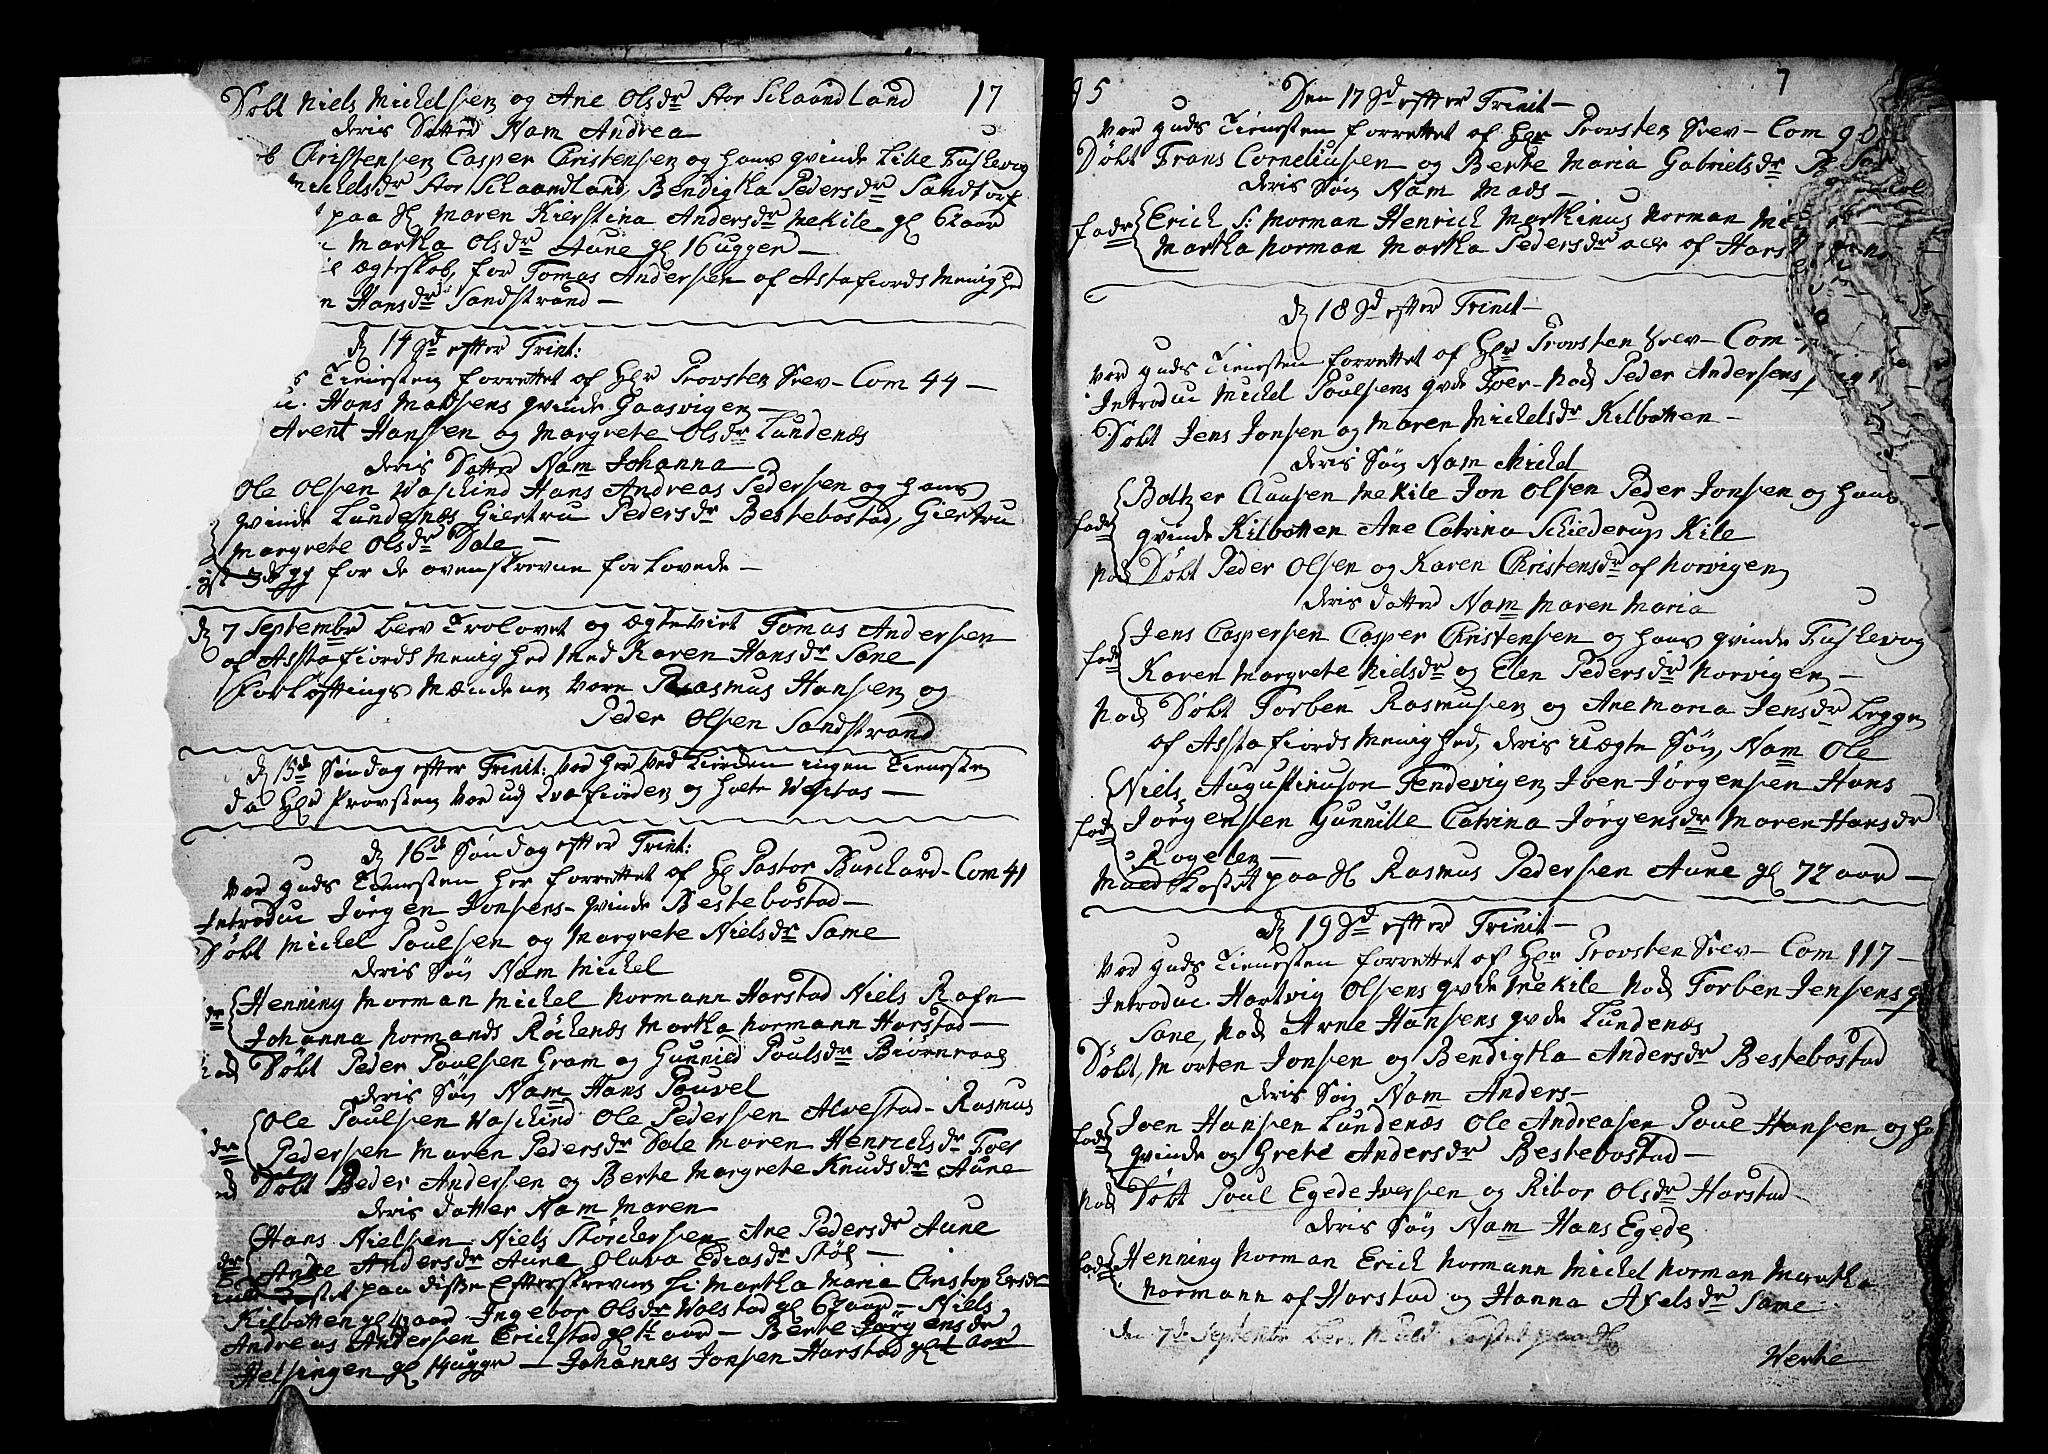 Døbt Niels Michelsen og Ane Olsdr Stor Schaandland 17
deris Datter Nam Andrea
Christensen Casper Christensen og hans qvinde Lille Fuglevog
Michelsdr Stor Schaandland, Bendigtha Pedersdr Sandtorf
paa Maren Kierstina Andersdr Mekile gl 62 aar
Martha Olsdr Aune gl 16 ugger
ægteskob, for Tomas Andersen af Astafiords Menighed
n Hansdr Sandstrand
D 14 Sd efter Trint:
Tienesten forrettet af Hr Provsten Srev - Com 44
Hans Madsens qvinde Gaasvigen
Arent Hanssen og Margrete Olsdr Lundenæs
deris Datter Nam Johanna
Ole Olsen Waschind Hans Andreas Pedersen og hans
qvinde Lundenæs Giertru Pedersdr Bestebostad, Giertru
Margrete Olsdr Dale
for de ovenskrevne forlovede
D 7 Septembr blev Trolovet og ægteviet Tomas Andersen
af Astafiords Menighed med Karen Hansdr Sane
Forløftings Mændene Vare Rasmus Hansen og
Peder Olsen Sandstrand
D 15d Søndag efter Trinit: Var her ved Kierken ingen Tieneste
da Hr Provsten Var ud og holte Visitas
D 16d Søndag efter Trint:
Var guds Tienesten her forrettet af Hr Pastor Burchard - Com 41
Introduc Jørgen Jonsens qvinde Bestebostad
Døbt Michel Poulsen og Margrete Nielsdr Same
deris Søn Nam Michel
Henning Norman Michel Normann Harstad Niels Rafn
Johanna Normands Røchenæs Martha Normann Harstad
Nock Døbt Peder Poulsen Gram og Gunnild Poulsdr Biørnraae
deris Søn Nam Hans Pouvel
Ole Poulsen Waschind Ole Pedersen Alvestad - Rasmus
Pedersen Maren Pedersdr Dale Maren Henrichsdr Foer
Døbt Peder Andersen og Berte Margrete Knudsdr Aune
deris datter Nam Maren
Hans Nielsen Niels Størchersen Ane Pedersdr Aune
Anne Andersdr Aune Oluva Ediasdr Støl
kastet paa disse Efterskrevne Martha Maria Christophersdr
Kilbotten gl aar Ingebor Olsdr Wolstad gl 67 aar - Niels
Andreas Andersen Erichstad gl aar - Berte Jørgensdr
Helsingen gl 14 ugger - Johannes Jonsen Harstad gl aar
95 7
Den 17 Sd efter Trinit
Var guds Tienesten forrettet af Hr Provsten Srev - Com 90
Døbt Frans Corneliusen og Berte Maria Gabrielsdr
deris Søn Nam Mads
fadr Erich S: Norman Henrich Marthinus Norman
Martha Norman Martha Pedersdr alle af Harst
D 18 Sd efter Trinit
Var guds Tienesten forrettet af Hr Provsten Srev - Com
Introduc Michel Poulsens qvde Foer - Nock Peder Andersens
Døbt Jens Jonsen og Maren Michelsdr Kilbotten
deris Søn Nam Michel
fadr Boltzer Clausen Mekile Jon Olsen Peder Jonsen og hans
qvinde Kilbotten Ane Catrina Schiederup Kile
Nock Døbt Peder Olsen og Karen Christensdr af Norvigen
deris datter Nam Maren Maria
fadr Jens Caspersen Casper Christensen og hans qvinde Fuglevog
Karen Margrete Nielsdr og Elen Pedersdr Norvigen
Nock Døbt Torben Rasmusen og Ane Maria Jensdr begge
af Astafiords Menighed, deris uægte Søn, Nam Ole
Niels Augustinuson Tendevigen Joen Jørgensen Hans
fadr Jørgensen Gunnille Catrina Jørgensdr Maren Hansdr
Rogelen
Muld kastet paa Rasmus Pedersen Aune gl 72 aar
D 19 Sd efter Trinit
Var guds Tienesten forrettet af Hr Provsten Srev - Com 117
Introduc. Hartvig Olsens qvde Mekile Nock Torben Jensens
Sane, Nock Arne Hansens qvde Lundenæs
Døbt, Morten Jonsen og Bendigtha Andersdr Bestebostad
deris Søn Nam Anders
fadr Joen Hansen Lundenæs Ole Andreasen Poul Hansen og ha
qvinde og Grete Andersdr Bestebostad
Nock Døbt Poul Egede Ivessen og Ribor Olsdr Harstad
deris Søn Nam Hans Egede
fadr Henning Norman Erich Normann Michel Norman Martha
Normann af Harstad og Hanna Axelsdr Same
den 7d Septembr blev Muld kastet paa
Werke